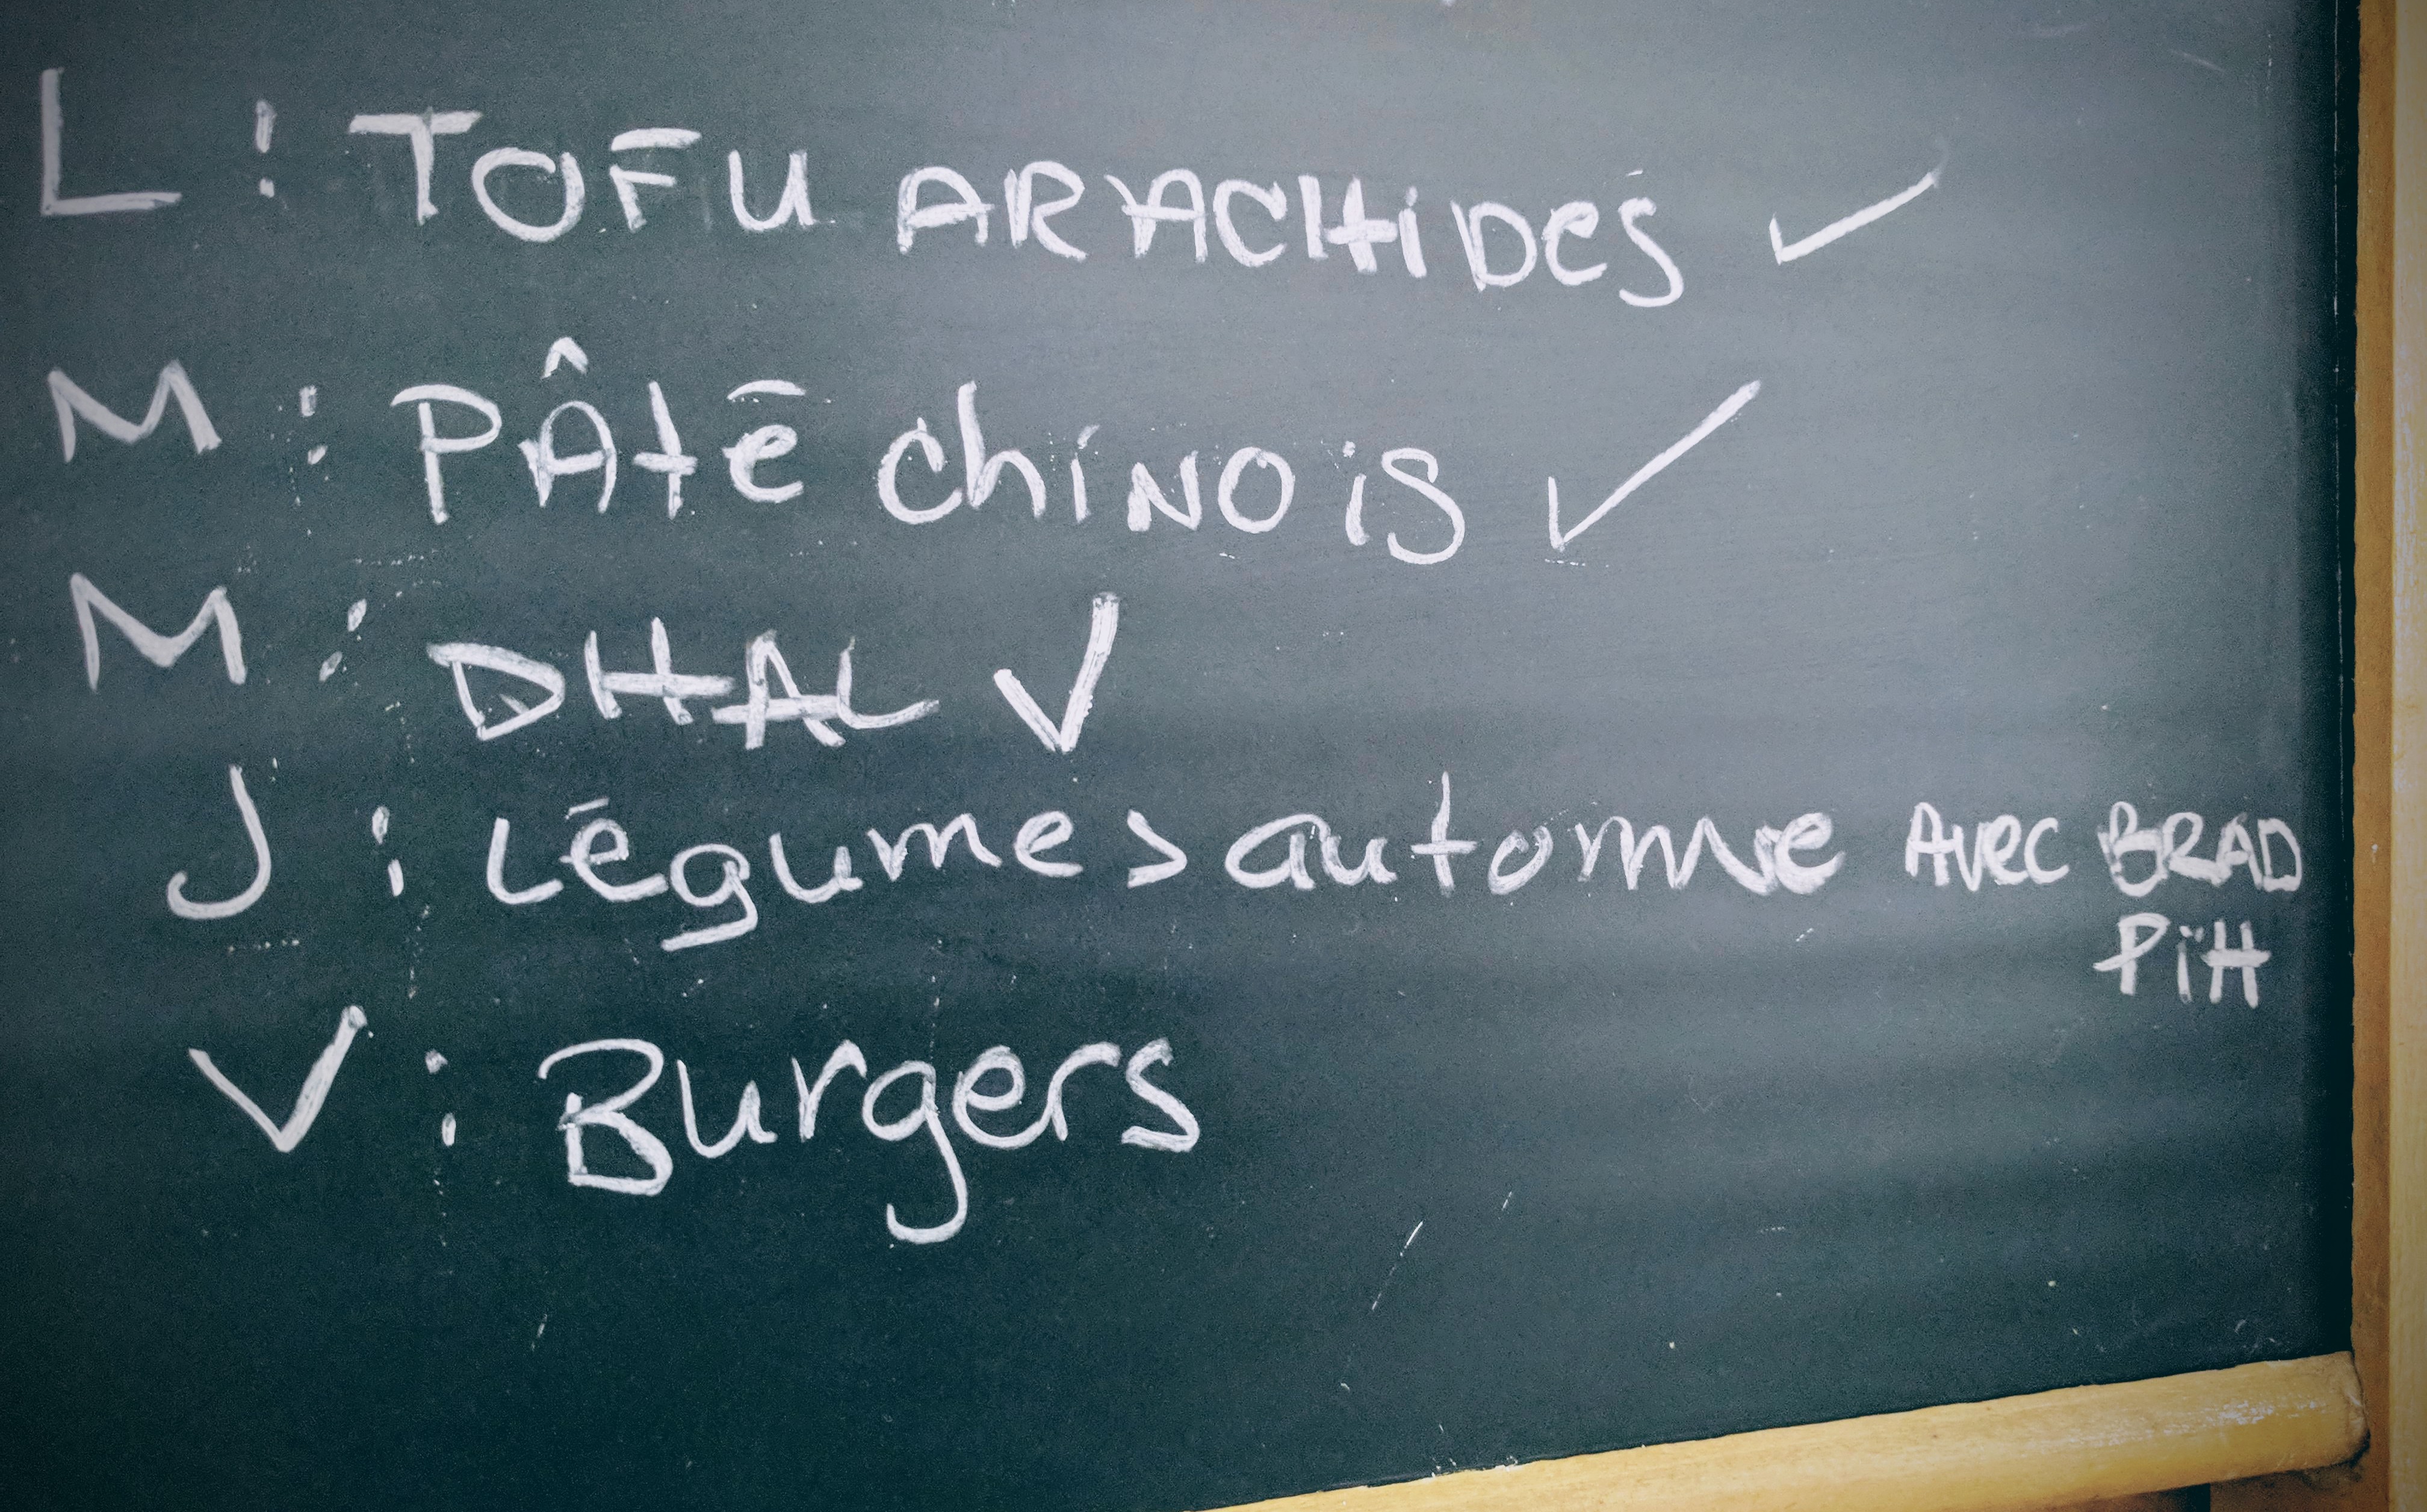 L : TOFU ARACHiDES ✓
M : PÂté chiNOiS ✓
M : DHAL ✓
J : Légumes automne AVEC BRAD
PiTT
V : Burgers